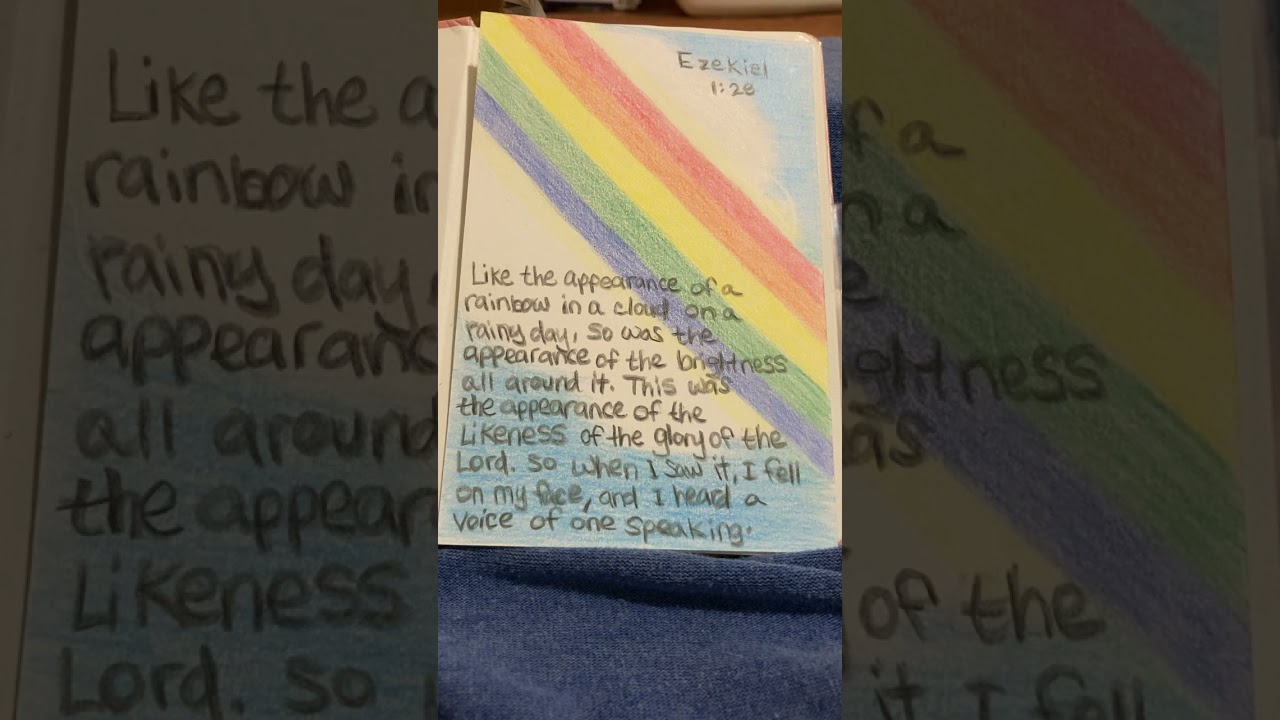 Ezekiel
1:28
Like the appearance of a
rainbow in a cloud on a
rainy day, so was the
appearance of the brightness
all around it. This was
the appearance of the
Likeness of the glory of the
Lord. So when I saw it, I fell
on my face, and I heard a
voice of one speaking.